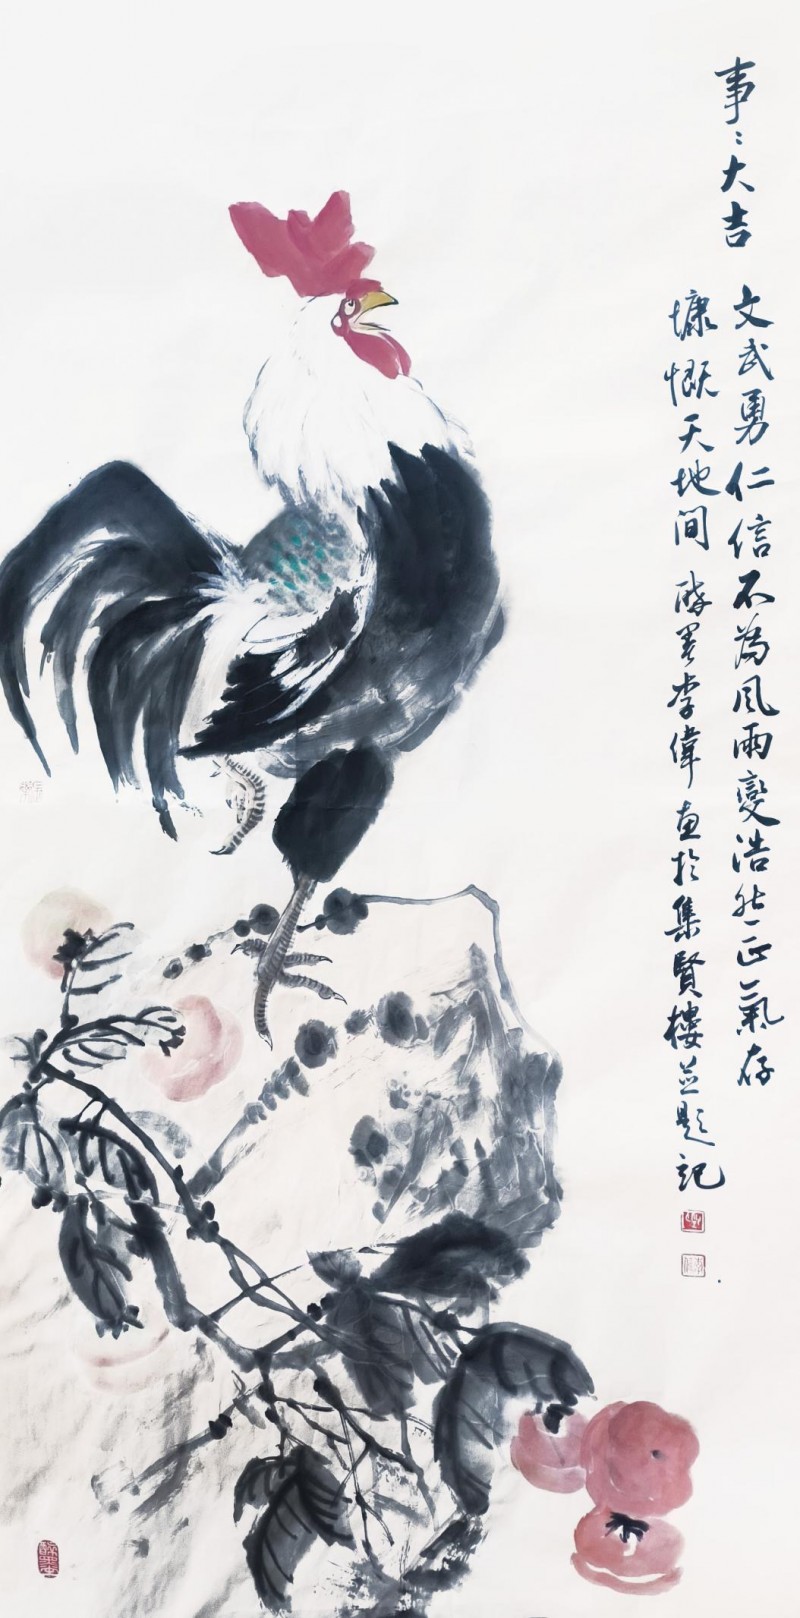 事〻大吉
文武勇仁信不為風雨變浩然正氣存
慷慨天地间醉墨李偉画於集賢樓並題記